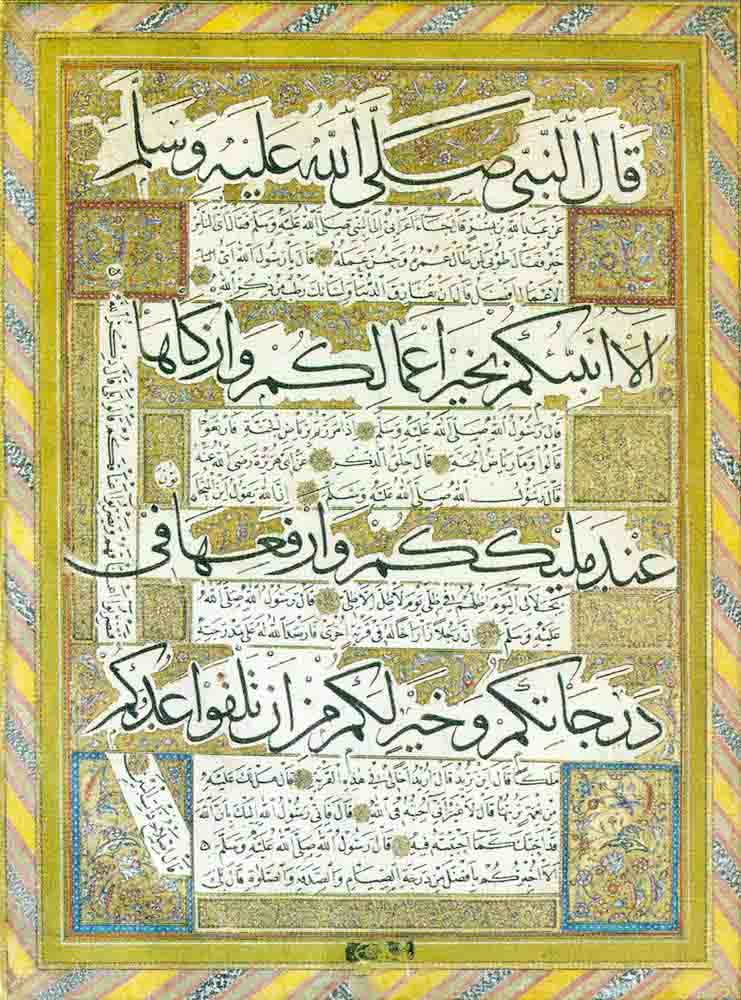 قال النبي صلى الله عليه وسلم
عن عبد الله بن بسر قال جاء اعرابى الى النبى صلى الله عليه وسلم فقال اى الناس
خير فقال طوبى لمن طال عمره وحسن عمله قال يا رسول الله اى
الاعمال افضل قال ان تفارق الدنيا ولسانك رطب من ذكر الله
الا انبئكم بخير اعمالكم وازكاها
قال رسول الله صلى الله عليه وسلم اذا مررتم برياض الجنة فارتعوا
قالوا وما رياض الجنة قال حلق الذكر عن ابى هريرة رضى الله عنه
قال رسول الله صلى الله عليه وسلم ان الله يقول اين المتحا
عند مليككم وارفعها فى
بجلالى اليوم اظلهم فى ظلى يوم لا ظل الا ظلى قال رسول الله صلى الله
عليه وسلم ان رجلا زار اخا له فى قرية اخرى فارصد الله له على مدرجته
درجاتكم وخير لكم من ان تلقوا عدوكم
ملكا قال اين تريد قال اريد اخا لى فى هذه القرية قال هل لك عليه
من نعمة تربها قال لا غير انى احبه فى الله قال فانى رسول الله اليك بان الله
قد احبك كما احببته فيه قال رسول الله صلى الله عليه وسلم
الا اخبركم بافضل من درجة الصيام والصدقة والصلوة قال بلى
قال اصلاح ذات البين